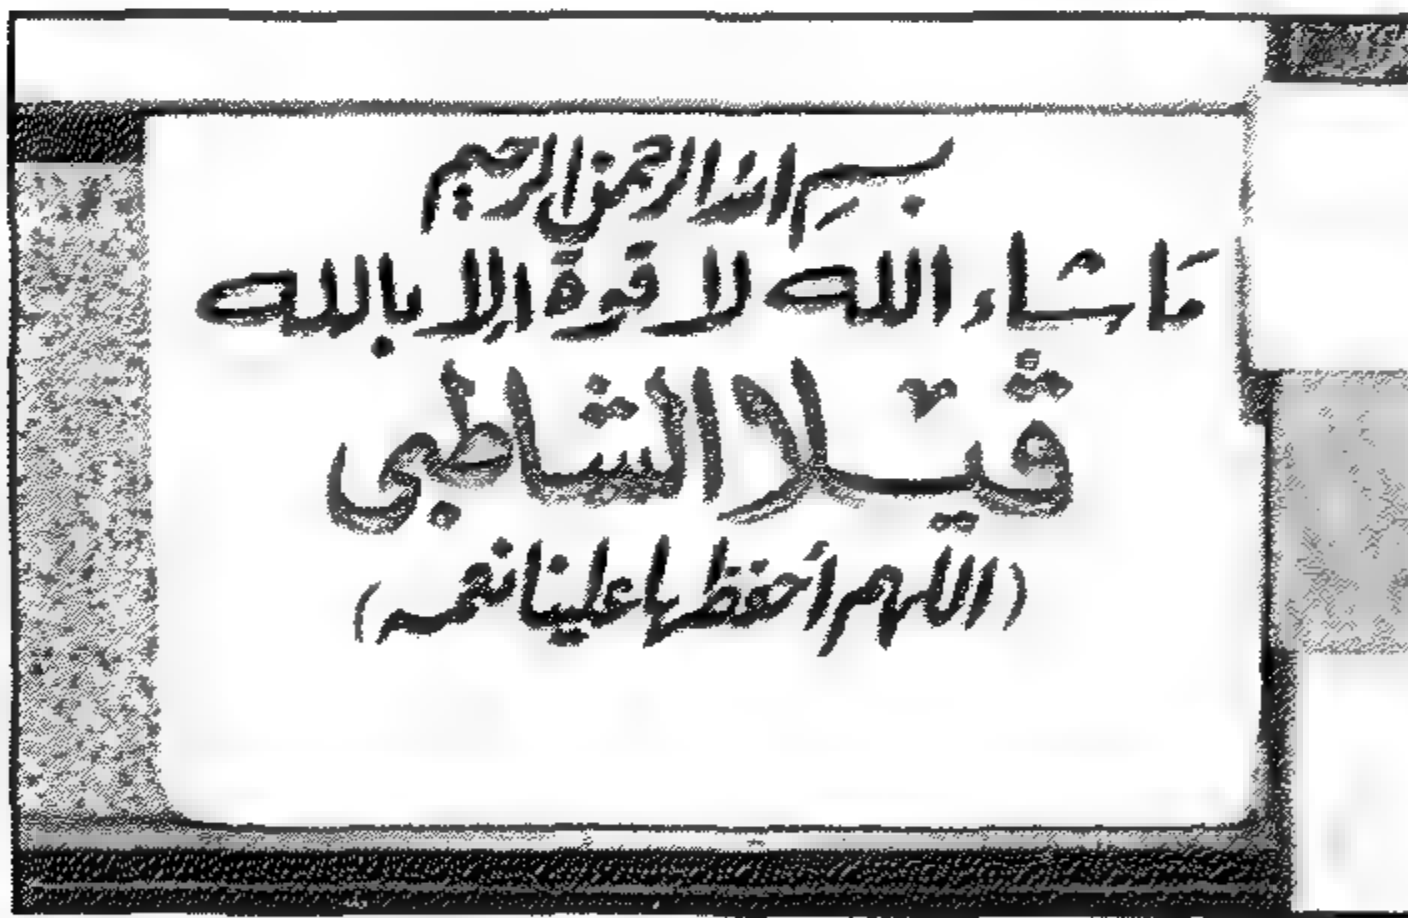 بسم الله الرحمن الرحيم
مَا شاء الله لا قوة إلا بالله
ڤيلا الشاطبى
(اللهم أحفظها علينا نعمه)